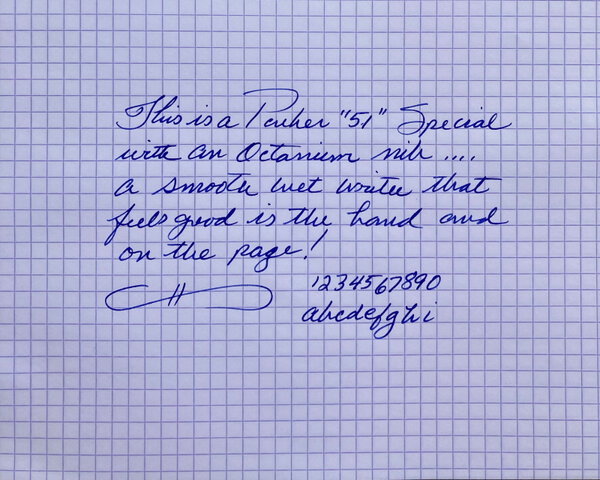 This is a Parker "51" Special
with an Octanium nib ....
a smooth wet writer that
feels good is the hand and
on the page!
1234567890
abcdefghi